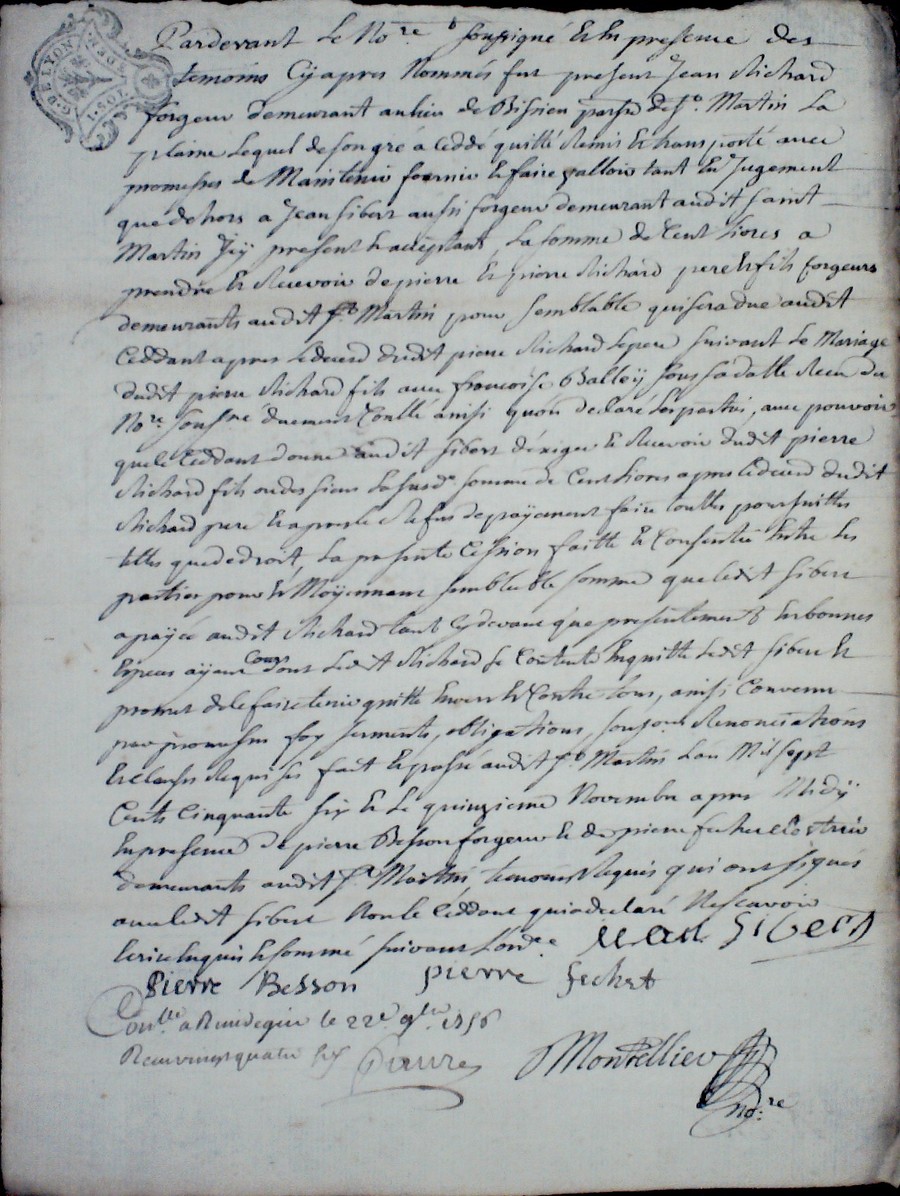 G. DE LYON
1. SOL
Pardevant Le No.re soussigné Et En pressence des
temoins Cyapres Nommés fut present Jean Richard
forgeur demeurant au lieu de Bissieu parsse de St. Martin La
plaine Lequel de son gré a Ceddé quitté Remis Et transporté avec
promesses de Maintenir fournir Et faire valloir tant En Jugement
que dehors a Jean sibert aussi forgeur demeurant audit saint
Martin Jcy present Et acceptant, La somme de Cent livres a
prendre Et Recevoir de pierre Et pierre Richard pere Et fils forgeurs
demeurants audit St. Martin pour semblable qui sera due audit
Ceddant apres Le deced dudit pierre Richard Le pere suivant Le Mariage
dudit pierre Richard fils avec francoise Balley sous sa datte Receu du
No.re soussné duement Conllé ainsi qu'on declaré Les parties, avec pouvoir
que le Ceddant donne audit sibert d'exiger Et Recevoir dudit pierre
Richard fils ou des siens La susd.e somme de Cent livres apres Le deced dudit
Richard pere Et apres le Refus de payement faire touttes poursuittes
telles que de droit, La presente Cession faitte Et Consentie Entre Les
parties pour Et Moyennant semblable somme que ledit sibert
a payée audit Richard tant Cy devant que presentement En bonnes
Especes ayant Cours dont Ledit Richard se Contente En quitte Ledit sibert Et
promet de le faire tenir quitte Envers Et Contre tous, ainsi Convenu
par promesses foy serments, obligations, Renonciations
Et clauses Requises fait Et passé audit St. Martin L'an Mil sept
Cents Cinquante six Et Le quinzieme Novembre apres Midy
En presence de pierre Besson forgeur Et de pierre fechet
demeurants audit St. Martin, temoins Requis qui ont signés
avec ledit sibert Non le Ceddant qui a declaré Ne scavoir
Ecrire Enquis Et sommé suivant L'ord.e Jean Sibert
Pierre Besson pierre fechet
Con.llé a Rivedegier le 22.e 9.bre 1756
Receu vingt quatre sols
Montellier
no.re